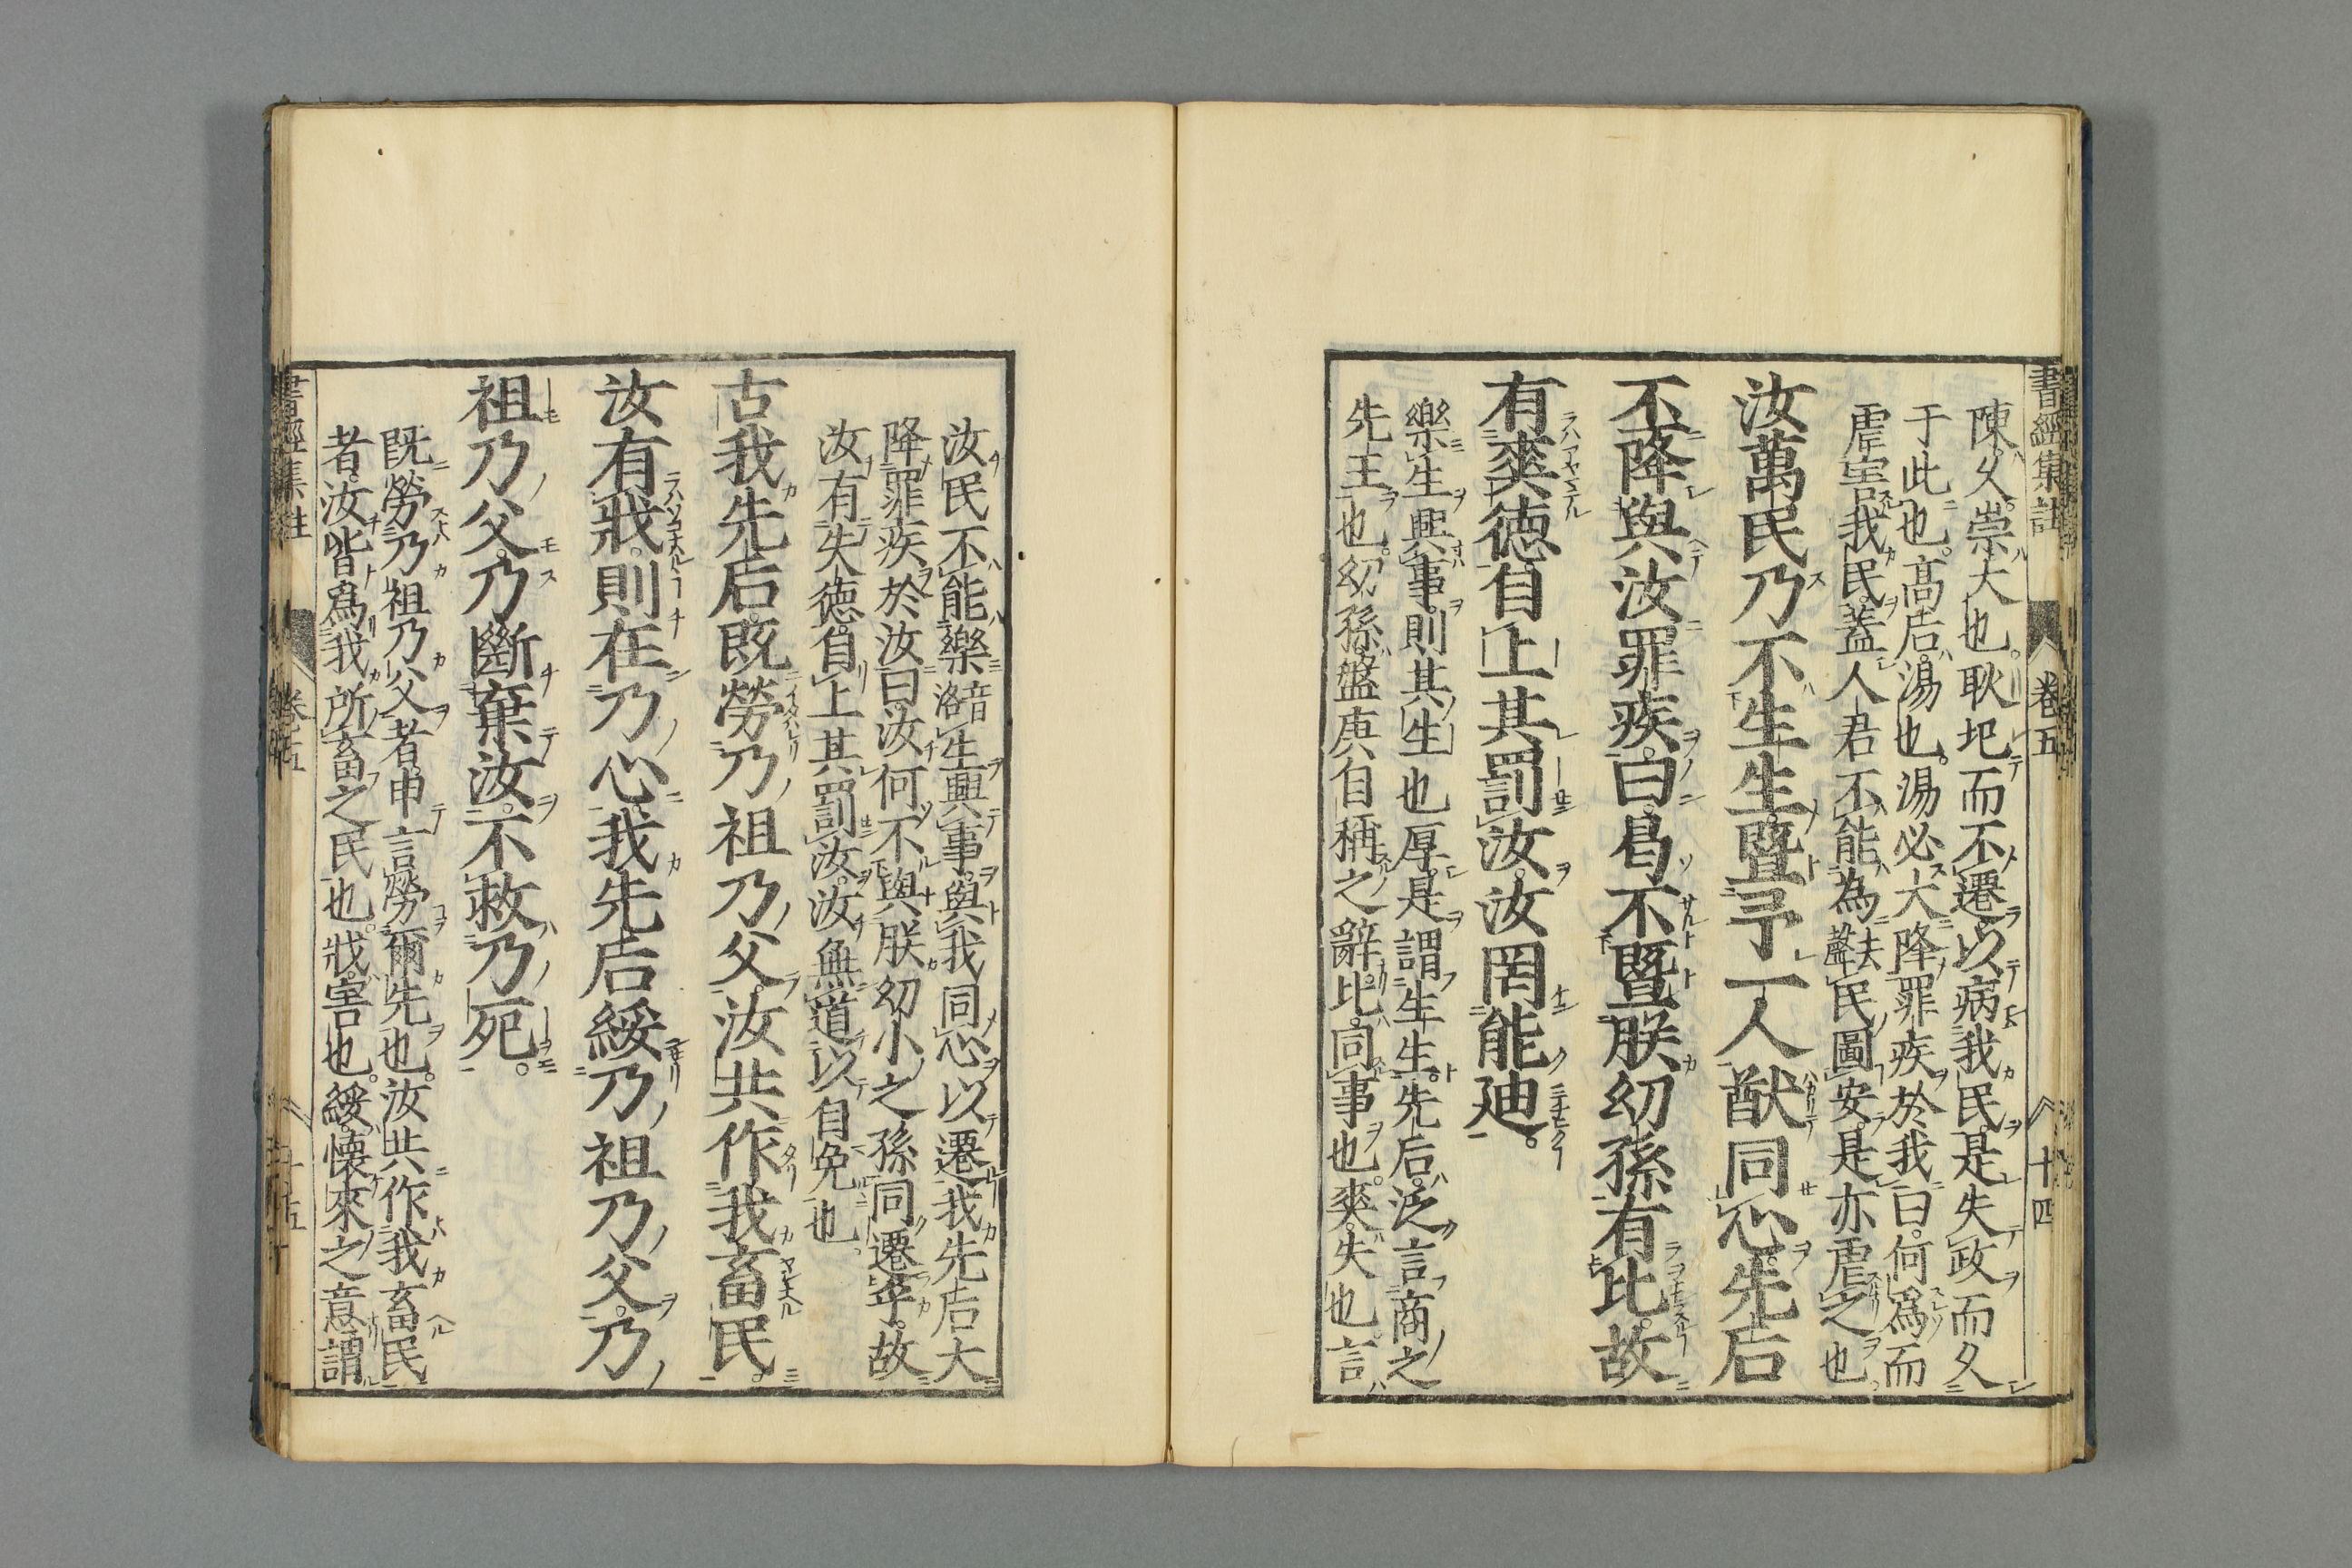 書經集註 卷五 十四
陳久。崇大也。耿圯而不遷。以病我民。是失政而久
于此也。高后。湯也。湯必大降罪疾於我曰。何爲而
虐害我民。蓋人君不能為去聲民圖安。是亦虐之也。
汝萬民乃不生生。暨予一人猷同心。先后
丕降與汝罪疾。曰。曷不暨朕幼孫有比。故
有爽德。自上其罰汝。汝罔能迪。
樂生興事。則其生也厚。是謂生生。先后。泛言商之
先王也。幼孫。盤庚自稱之辭。比。同事也。爽。失也。言
汝民不能樂音洛生興事。與我同心以遷。我先后大
降罪疾於汝曰。汝何不與朕幼小之孫同遷乎。故
汝有失德。自上其罰汝。汝無道以自免也。
古我先后。既勞乃祖乃父。汝共作我畜民。
汝有戕。則在乃心。我先后綏乃祖乃父。乃
祖乃父。乃斷棄汝。不救乃死。
既勞乃祖乃父者。申言勞爾先也。汝共作我畜民
者。汝皆爲我所畜之民也。戕。害也。綏。懷來之意。謂
書經集註 卷五